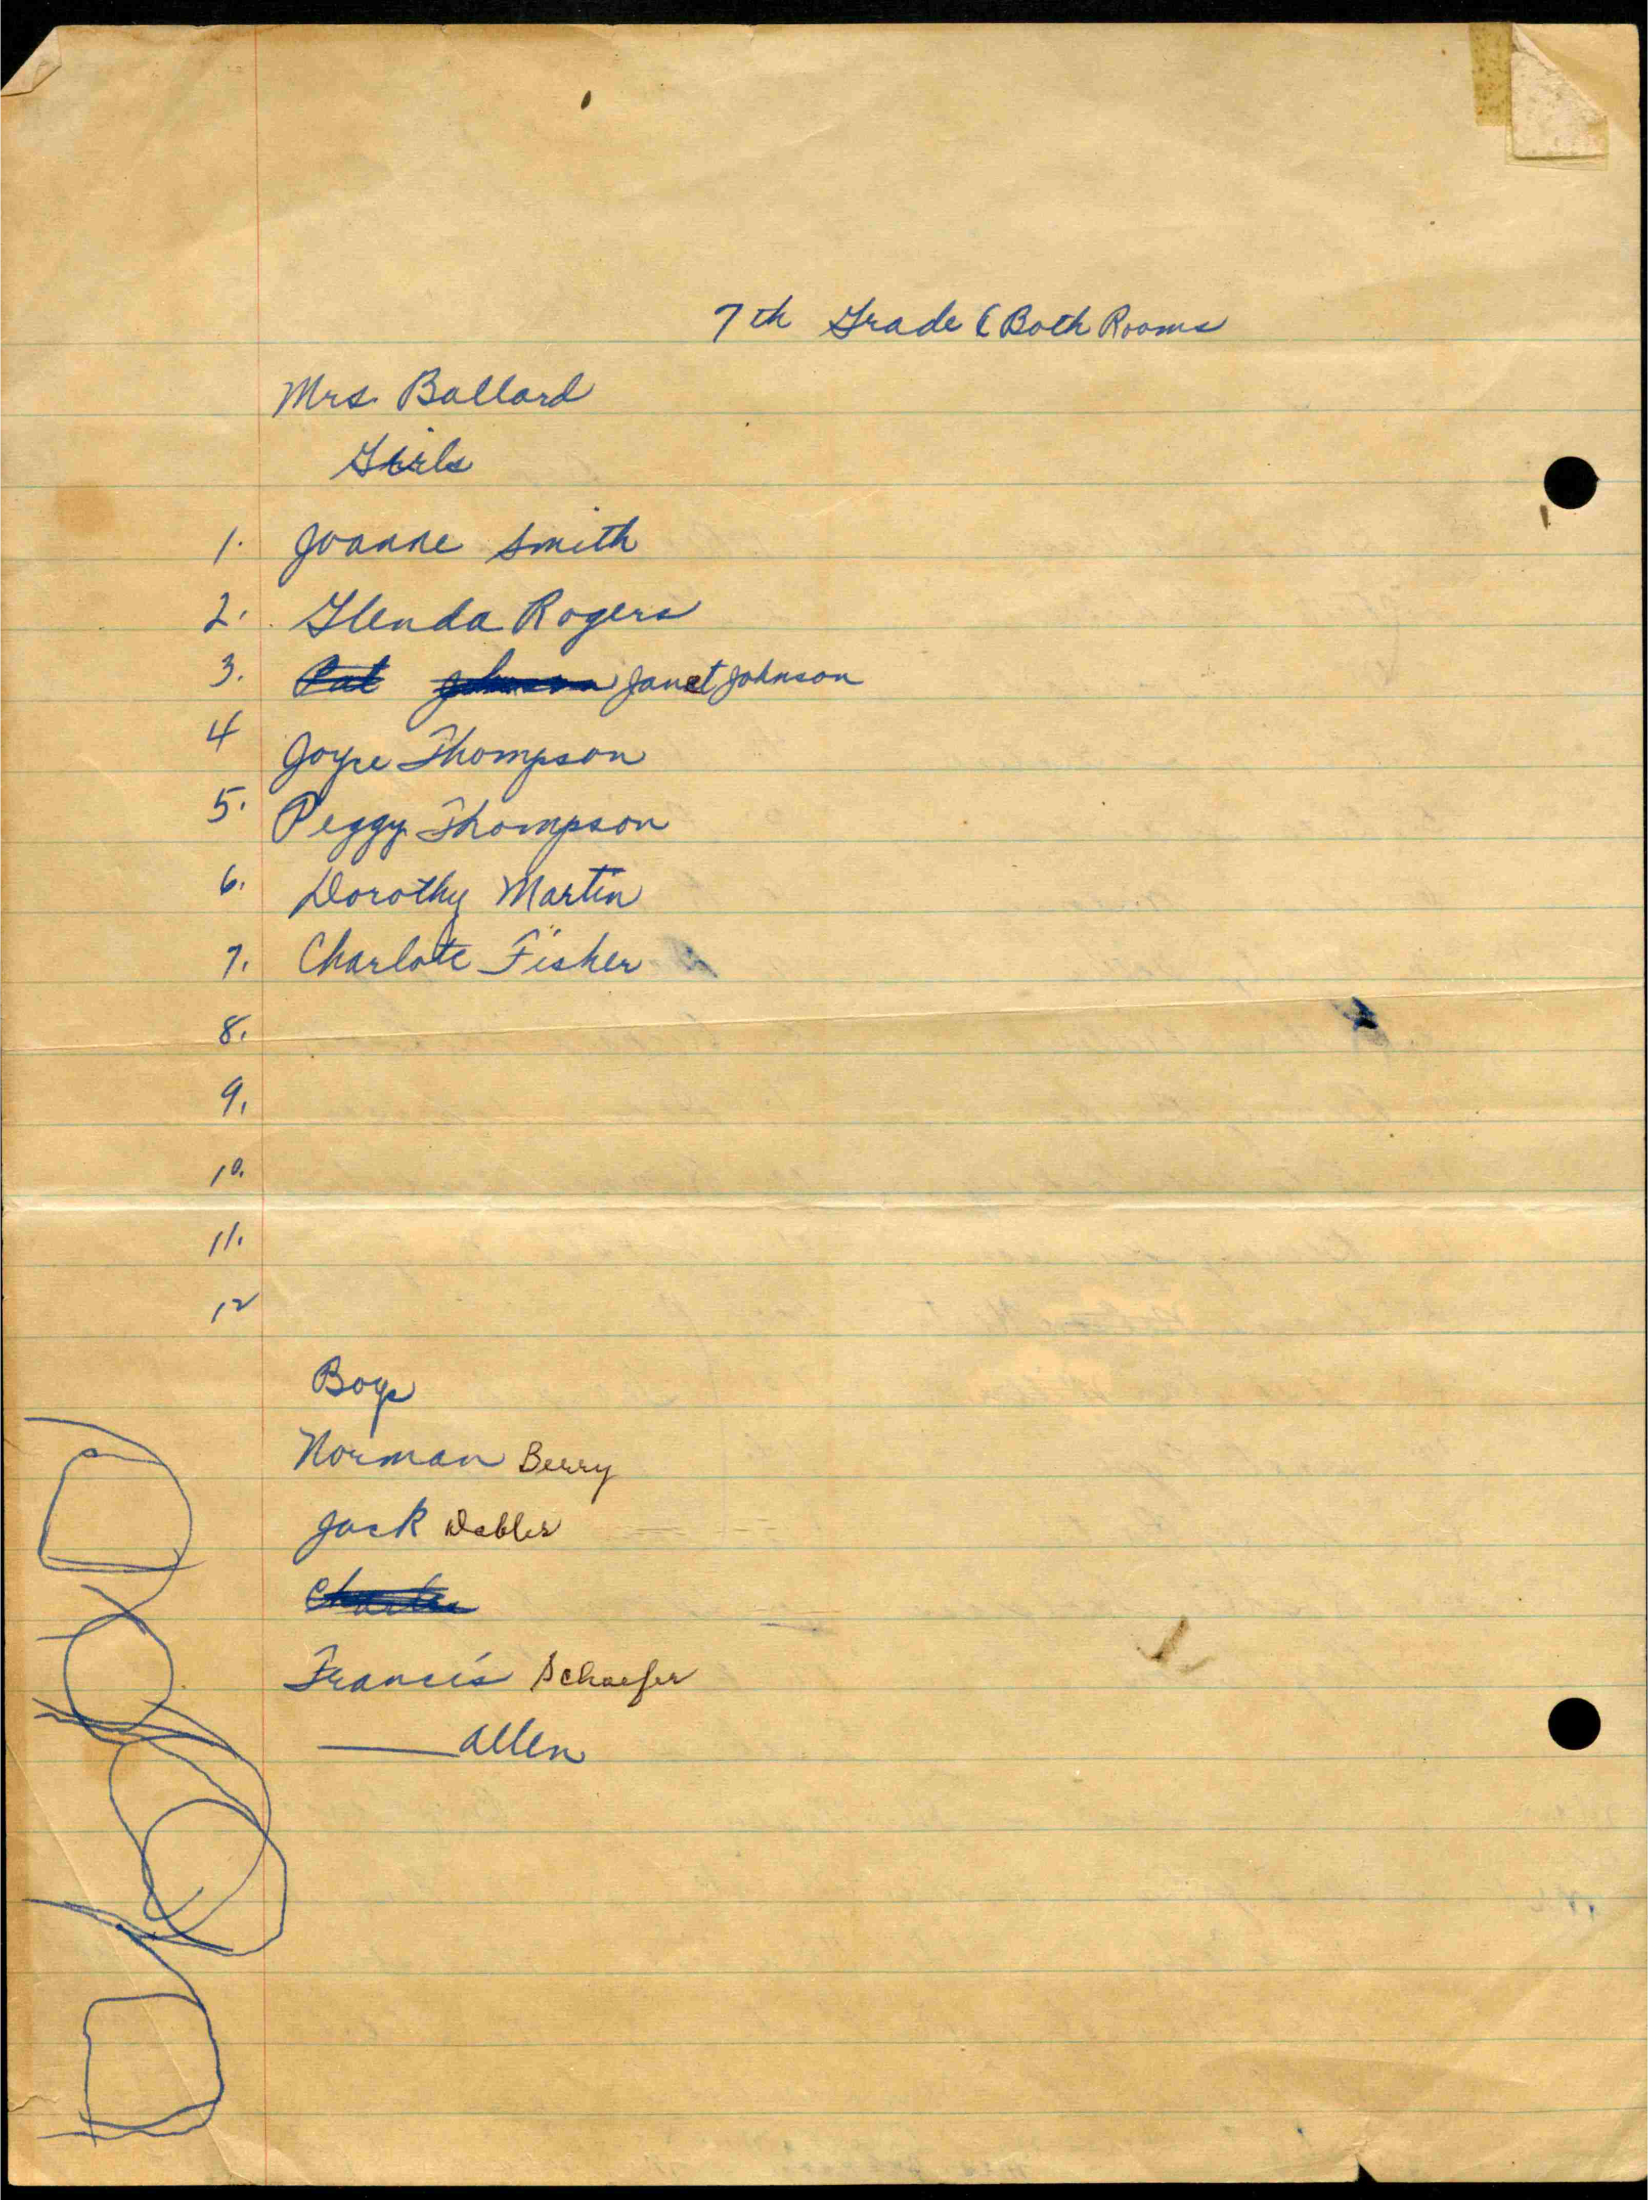 7th Grade (Both Rooms
Mrs. Ballard
Girls
1. Joanne Smith
2. Glenda Rogers
3. Pat Johnson Janet Johnson
4 Joyce Thompson
5. Peggy Thompson
6. Dorothy Martin
7. Charlote Fisher
8.
9.
10.
11.
12
Boys
Norman Berry
Jack
Charles
Francis Schaefer
allen